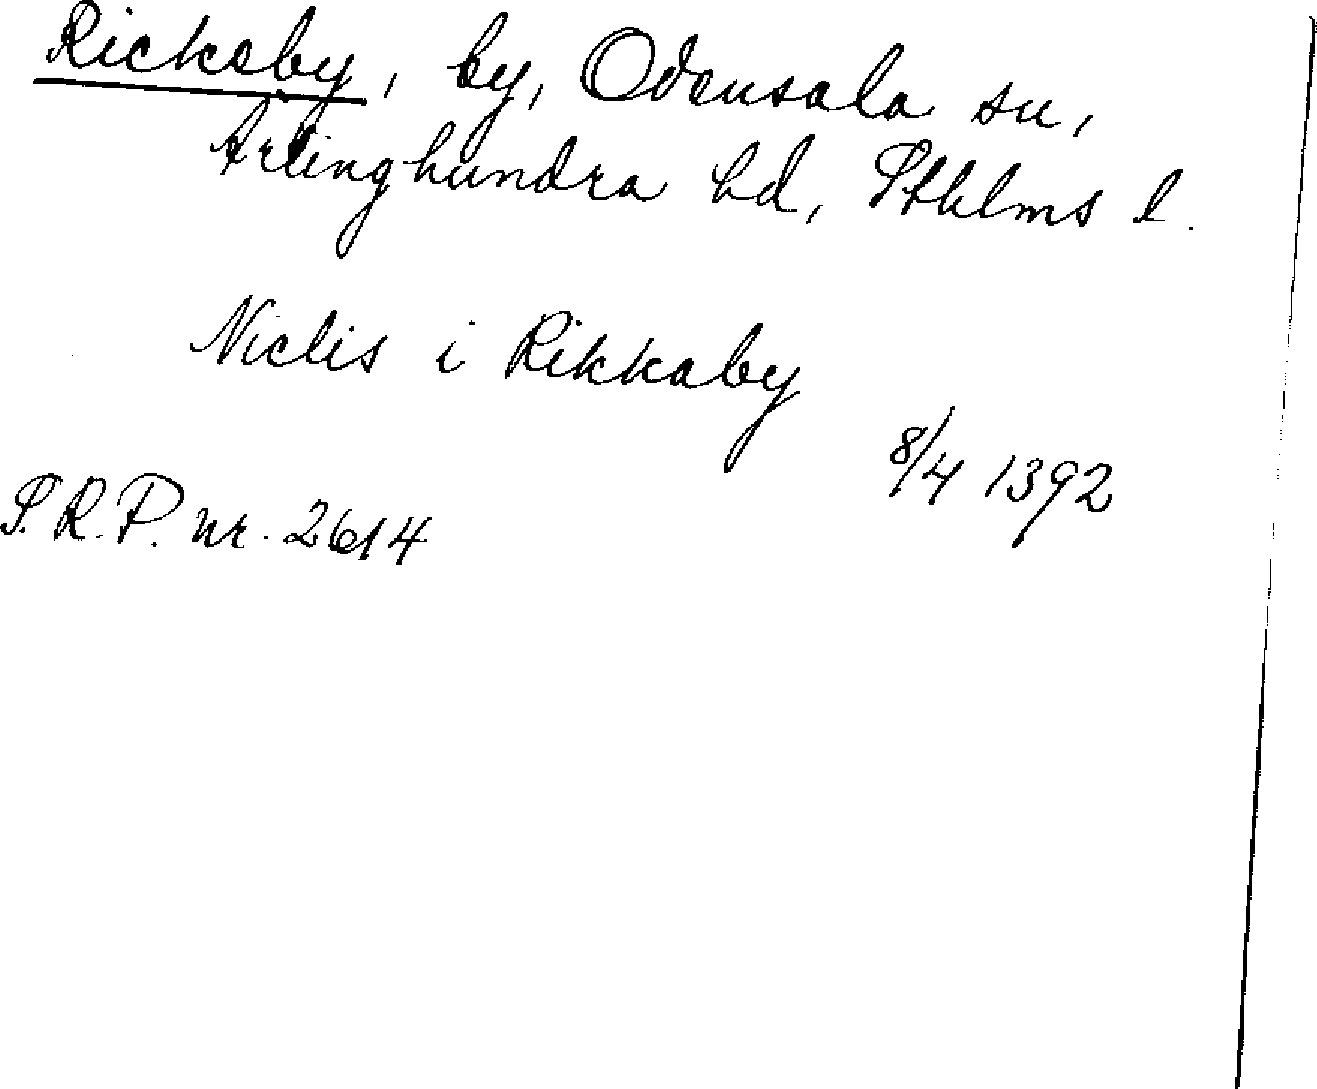 Rickeby, by, Odensala sn,
Ärlinghundra hd, Sthlms l.
Niclis i Rikkaby
8/4 1392
S.R.P. nr. 2614